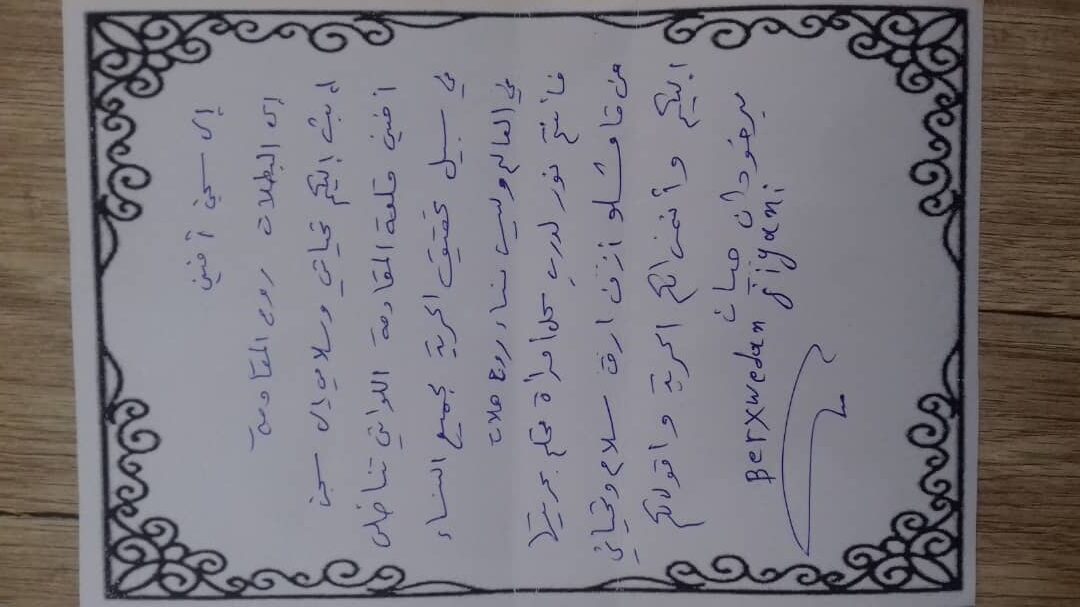 إلى سجن إفين
إلى البطلات روح المقاومة
ابعث اليكم تحياتي وسلامي الى سجن
افين قلعة المقاومة اللواتي تناضلن
في سبيل تحقيق الحرية لجميع النساء
في العالم وليس نساء روج هلات
فأنتم نور لدرب كل امرأة تحلم بحريتها
من قامشلو ارق سلام وتحياتي
اليكم وأتمنى لكم الحرية واقول لكم
برخودان جيان
Berxwedan jiyani